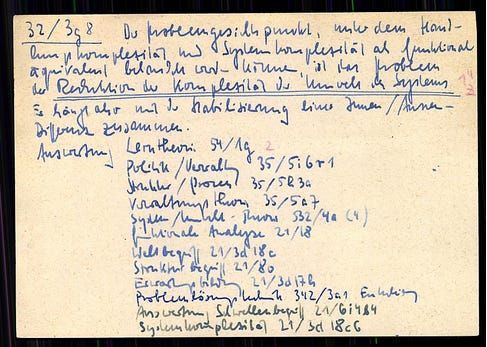 32/3g8 Der Problemgesichtspunkt, unter dem Hand-
lungskomplexität und Systemkomplexität als funktional
äquivalent behandelt werden können, ist das Problem
der Reduktion der Komplexität der Umwelt des Systems
Es hängt also mit der Stabilisierung einer Innen/Aussen-
Differenz zusammen.
Auswertung Lerntheorie 54/1g 2
Politik/Verwaltung 35/5i6r1
Struktur/Prozess 35/5833a
Verwaltungstheorie 35/5a7
System/Umwelt-Theorie 532/4a (4)
funktionale Analyse 21/18
Weltbegriff 21/3d18c
Strukturbegriff 21/80
Erwartungsbildung 21/3d17h
Problemlösungstechnik 342/3a1
Auswertung Schwellenbegriff 21/6i484
Systemkomplexität 21/3d18c6